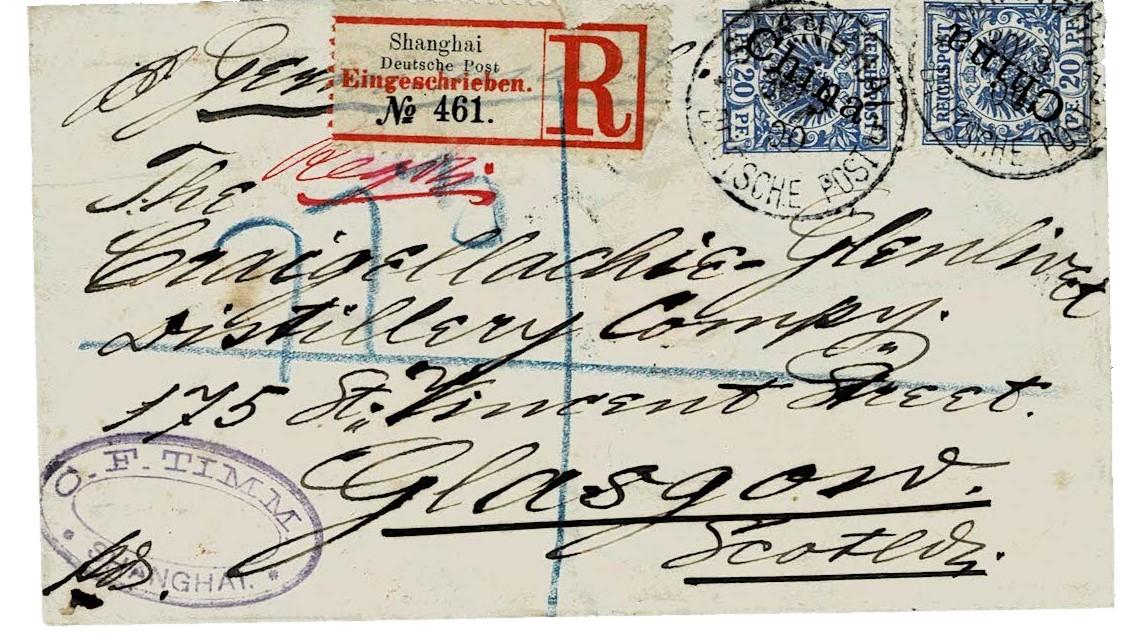 Shanghai
Deutsche Post
Eingeschrieben.
№ 461.
R
China
REICHSPOST
20 PF
China
REICHSPOST
20 PF
DEUTSCHE POST
The
Craigellachie-Glenlivet
Distillery Compy.
175 St. Vincent Street.
Glasgow.
Scotld.
O. F. TIMM
SHANGHAI.